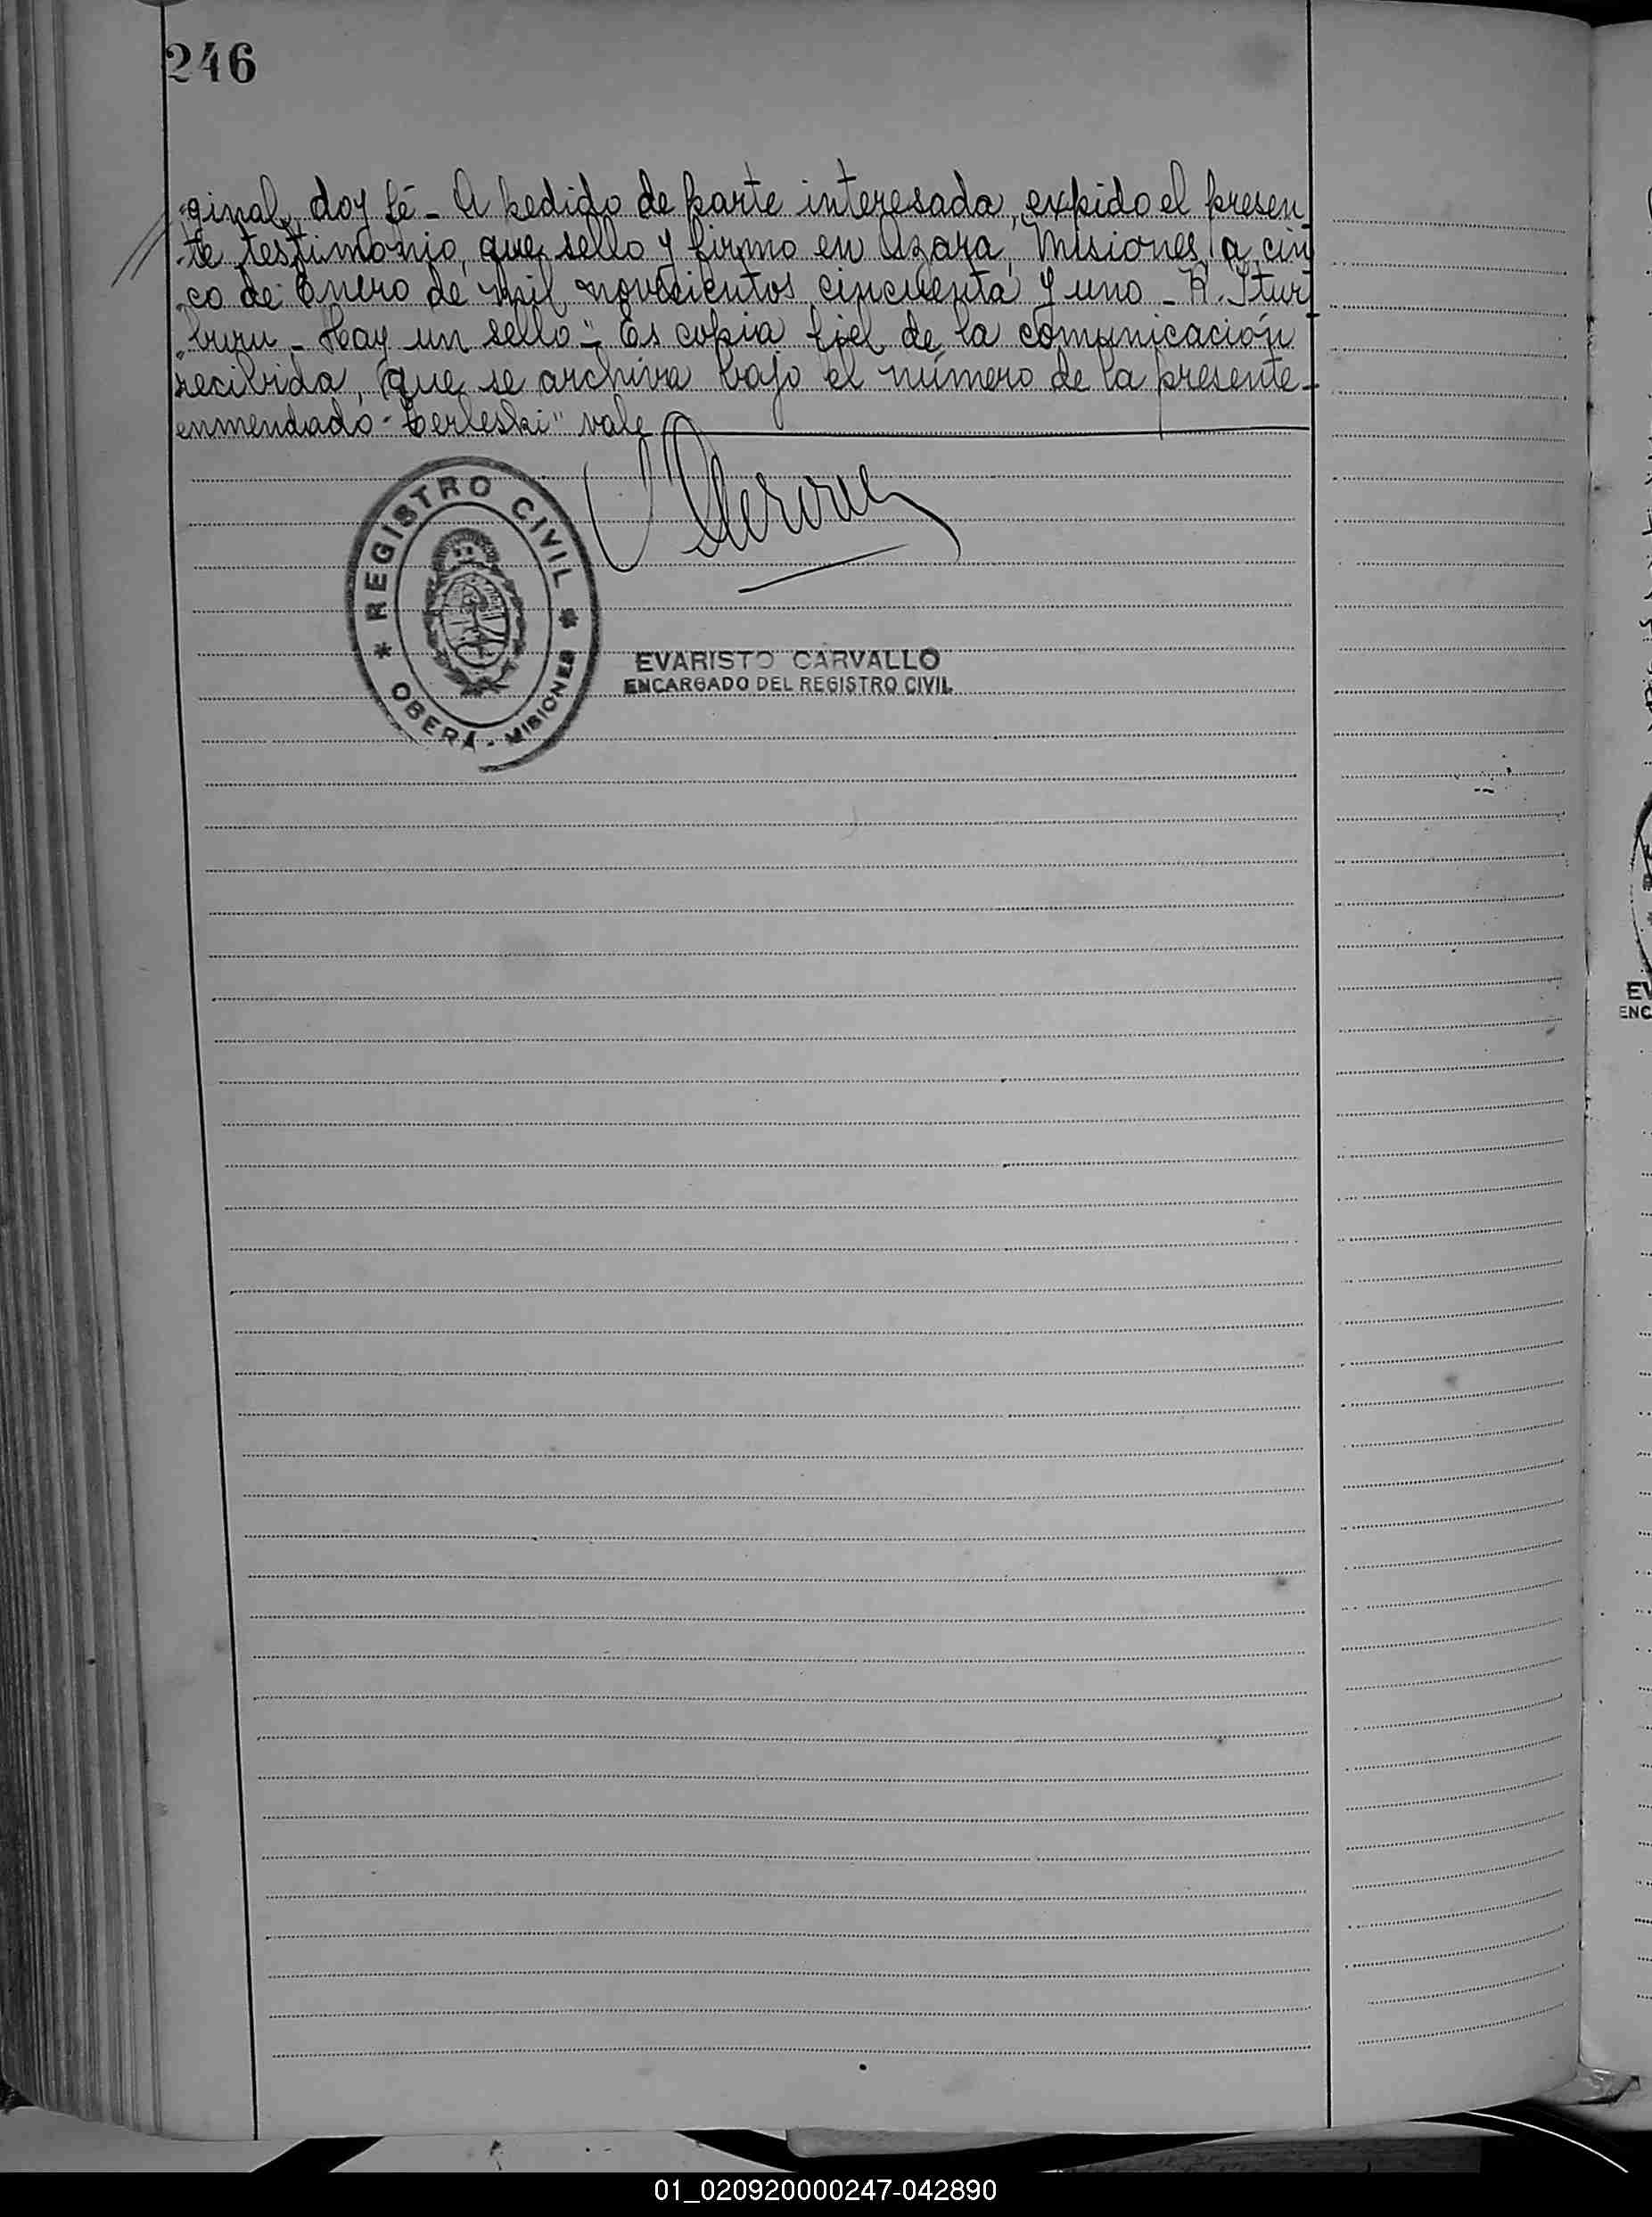 246
"ginal, doy fé - A pedido de parte interesada, expido el presen
"te testimonio, que sello y firmo en Azara, Misiones, a cin
"co de Enero de mil novecientos cincuenta y uno - A. Itur
"buru - Hay un sello -" Es copia fiel de la comunicación
recibida, que se archiva bajo el número de la presente -
enmendado - Cerleski" vale
REGISTRO CIVIL
OBERA - MISIONES
EVARISTO CARVALLO
ENCARGADO DEL REGISTRO CIVIL
EV
ENC
01_020920000247-042890